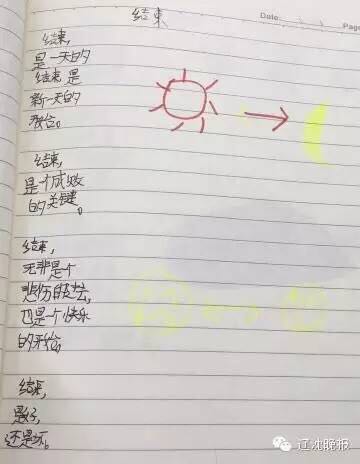 结束
Date:
Page
结束,
是一天的
结束,是
新一天的
开始。
结束,
是个成败
的关键。
结束,
无非是个
悲伤的过去,
也是个快乐
的开始,
结束,
是好,
还是坏。
辽沈晚报